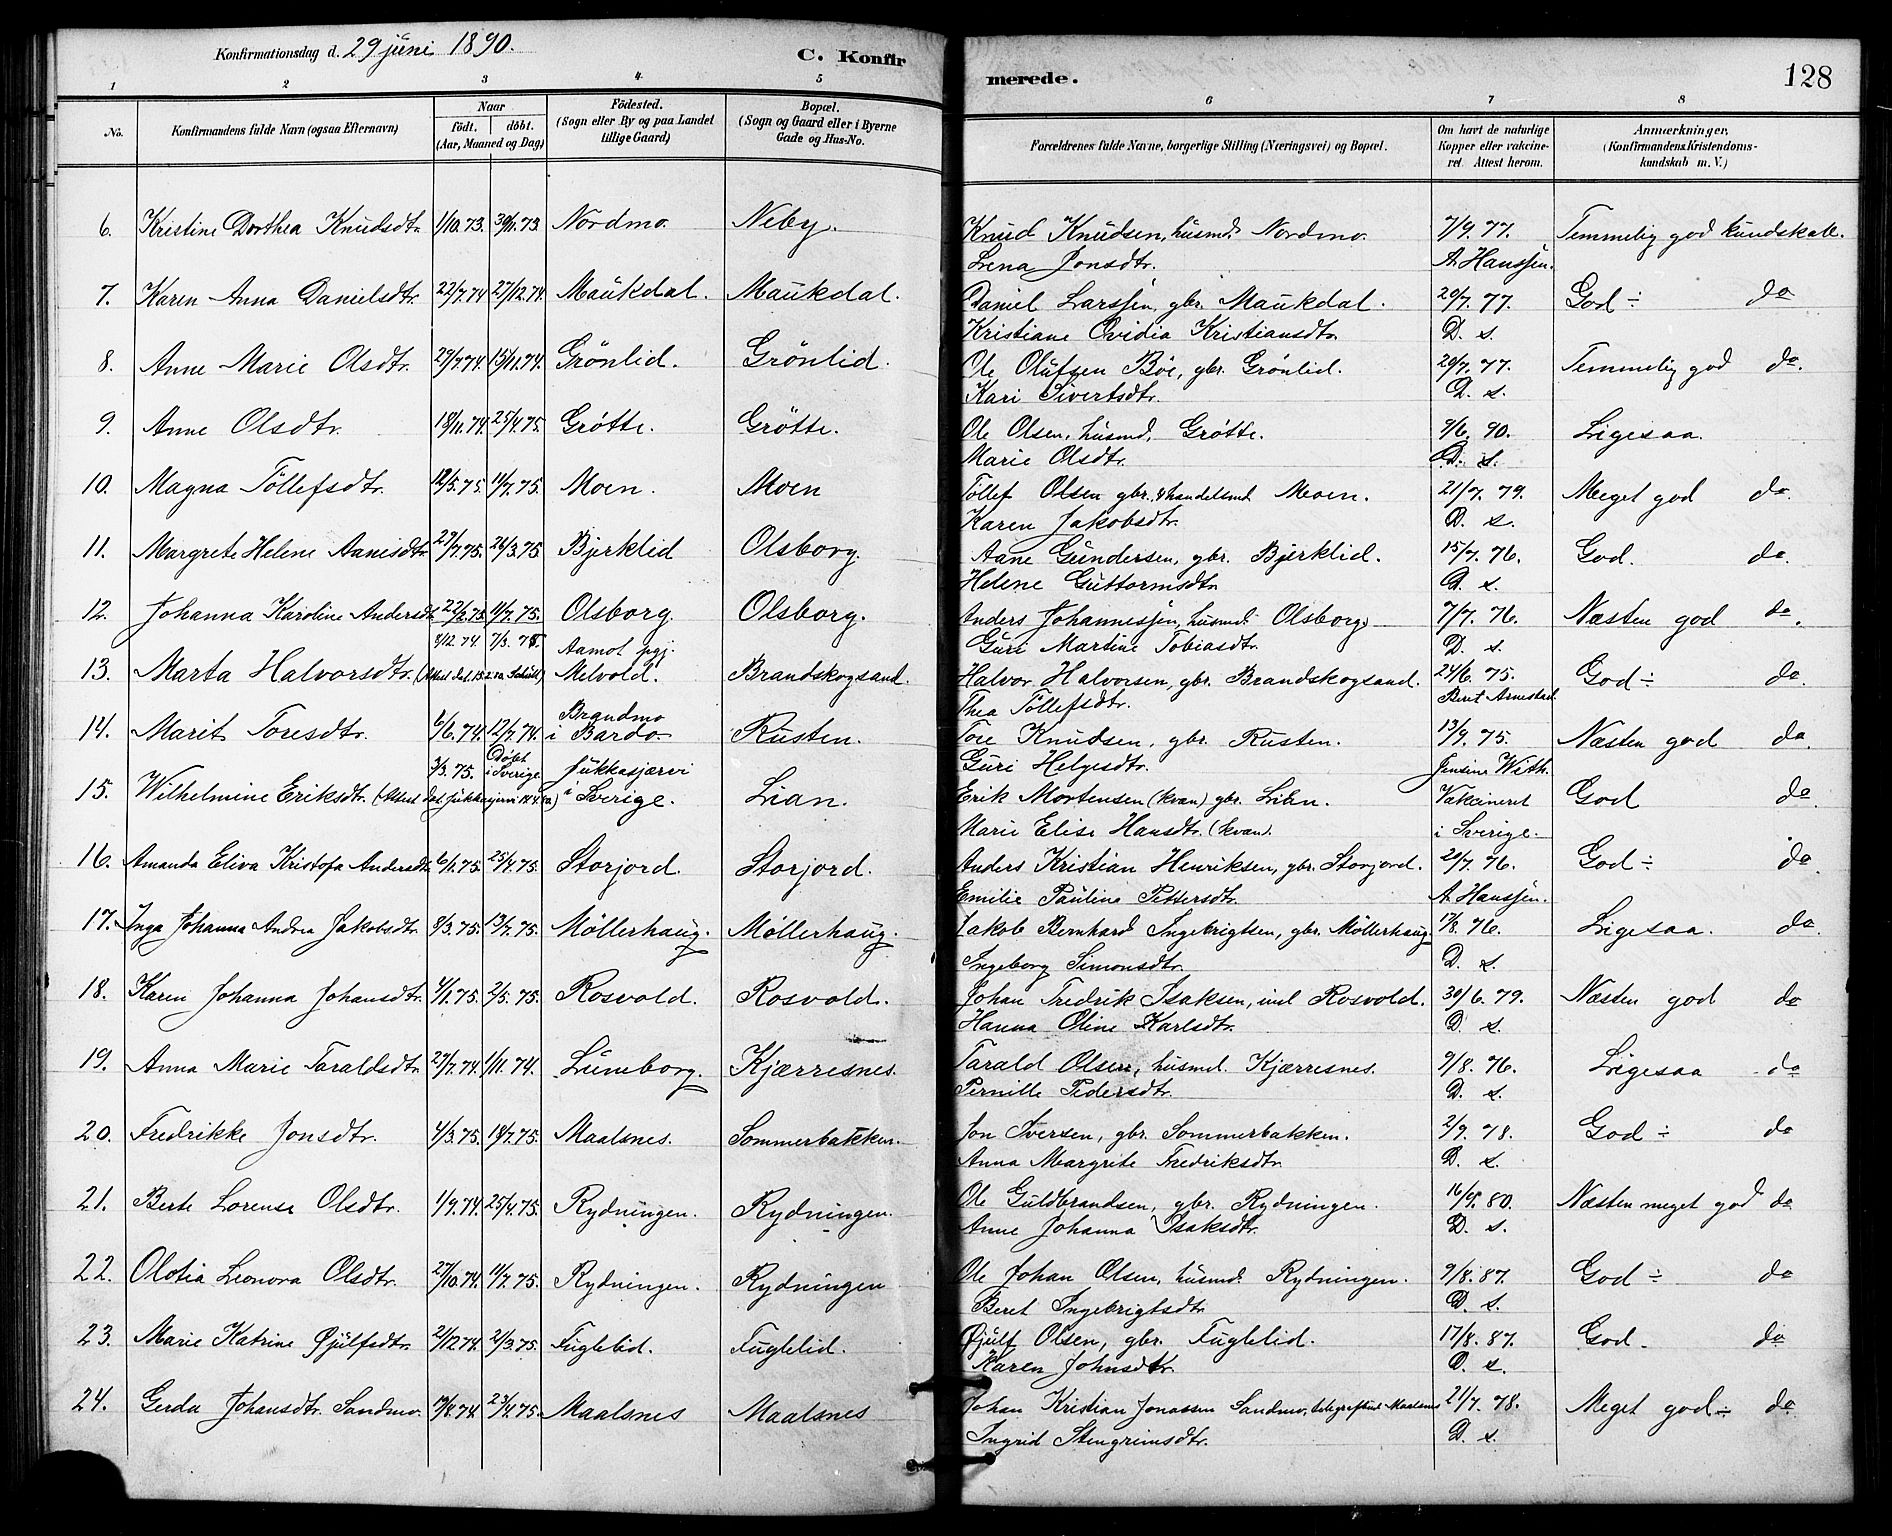 Konfirmationsdag d. 29 juni 1890.
C. Konfirmerede.
128
1 2 3 4 5 6 7 8
No.
Konfirmandens fulde Navn (ogsaa Efternavn)
Naar
födt. döbt.
(Aar, Maaned og Dag)
Födested.
(Sogn eller By og paa Landet
tillige Gaard)
Bopæl.
(Sogn og Gaard eller i Byerne
Gade og Hus-No.
Forældrenes fulde Navne, borgerlige Stilling (Næringsvei) og Bopæl.
Om havt de naturlige
Kopper eller vakcine-
ret. Attest herom.
Anmærkninger,
(Konfirmandens Kristendoms-
kundskab m. V.)
6. Kristine Dorthea Knudsdtr. 1/10.73. 30/11.73. Nordmo. Neby. Knud Knudsen, husmd. Nordmo. 7/9. 77. Temmelig god kundskab.
Lena Jonsdtr. A. Hanssen.
7. Karen Anna Danielsdtr. 22/7.74 27/12.74. Maukdal. Maukdal. Daniel Larssen, gbr. Maukdal. 20/7. 77. God ÷ do
Kristiane Ovidia Kristiansdtr. D. s.
8. Anne Marie Olsdtr. 29/7.74. 15/11.74. Grönlid. Grönlid. Ole Olufsen Böe, gbr. Grönlid. 20/7. 77. Temmelig god do.
Kari Sivertsdtr. D. s.
9. Anne Olsdtr. 18/11.74. 25/4.75. Grötte. Grötte. Ole Olsen, husmd. Grötte. 9/6. 90. Ligesaa.
Marie Olsdtr. D. s.
10. Magna Töllefsdtr. 12/5.75. 11/7.75. Moen. Moen Töllef Olsen gbr. & handelsmd. Moen. 21/7. 79. Meget god do.
Karen Jakobsdtr. D. s.
11. Margrete Helene Aanisdtr. 27/7.75. 26/3.75 Bjerklid Olsborg. Aane Gundersen, gbr. Bjerklid. 15/7. 76. God. do.
Helene Guttormsdtr. D. s.
12. Johanna Karoline Andersdtr. 22/2.75. 11/7.75. Olsborg. Olsborg. Anders Johannessen, husmd. Olsborg. 7/7. 76. Næsten god do.
Guri Martine Tobiasdtr. D. s.
9/12.74. 7/3.75. Aamot pgj.
13. Marta Halvorsdtr. Melvold. Brandskogsand. Halvor Halvorsen, gbr. Brandskogsand. 24/6. 75. God ÷ do.
Thea Töllefsdtr. Beret Arnestad.
14. Marit Toresdtr. 6/6.74. 12/7.74. Brandmo
i Bardo. Rusten. Tore Knudsen, gbr. Rusten. 13/9. 75. Næsten god do.
Guri Helgesdtr. Jensine With.
3/3.75. Döbt
i Sverige Jukkasjærvi
15. Wilhelmine Eriksdtr. i Sverige. Lian. Erik Mortensen (kvæn) gbr. Lien. Vakcineret God do.
Marie Elise Hansdtr. (kvæn). i Sverige.
16. Amanda Eliva Kristofa Andersdtr. 6/1.75. 25/4.75. Storjord. Storjord. Anders Kristian Henriksen, gbr. Storjord. 20/7. 76. God ÷ do.
Emilie Paulina Pettersdtr. A. Hanssen.
17. Inga Johanna Andrea Jakobsdtr. 8/3.75. 13/7.75. Möllerhaug. Möllerhaug. Jakob Bernhard Ingebrigtsen, gbr. Möllerhaug. 17/8. 76. Ligesaa. do.
Ingeborg Simonsdtr. D. s.
18. Karen Johanna Johansdtr. 4/1.75. 2/5.75. Rosvold. Rosvold. Johan Fredrik Isaksen, ind. Rosvold. 30/6. 79. Næsten god do
Hanna Oline Karlsdtr. D. s.
19. Anna Marie Taraldsdtr. 27/7.74. 1/11.74. Luneborg. Kjærresnes. Tarald Olsen, husmd. Kjærresnes. 9/8. 76. Ligesaa do
Pernille Pedersdtr. D. s.
20. Fredrikke Jonsdtr. 4/3.75. 18/7.75. Maalsnes. Sommerbakken. Jon Iversen, gbr. Sommerbakken. 2/9. 78. God ÷ do
Anna Margrete Fredriksdtr. D. s.
21. Berte Lorense Olsdtr. 1/9.74. 25/4.75. Rydningen. Rydningen. Ole Guldbrandsen, gbr. Rydningen. 16/9. 80. Næsten meget god do
Anne Johanna Isaksdtr. D. s.
22. Olotia Leonora Olsdtr. 27/10.74. 11/7.75. Rydningen. Rydningen Ole Johan Olsen, husmd. Rydningen. 9/8. 87. God ÷ do
Beret Ingebrigtsdtr. D. s.
23. Marie Katrine Øjulfsdtr. 21/12.74. 21/3.75. Fuglelid. Fuglelid. Øjulf Olsen, gbr. Fuglelid. 17/8. 87. God. do
Karen Johnsdtr. D. s.
24. Gerda Johansdtr. Sandmo. 19/8.74. 23/4.75. Maalsnes Maalsnes Johan Kristian Jonassen Sandmo, Maalsnes 21/7. 78. Meget god ÷ do
Ingrid Stengrimsdtr. D. s.